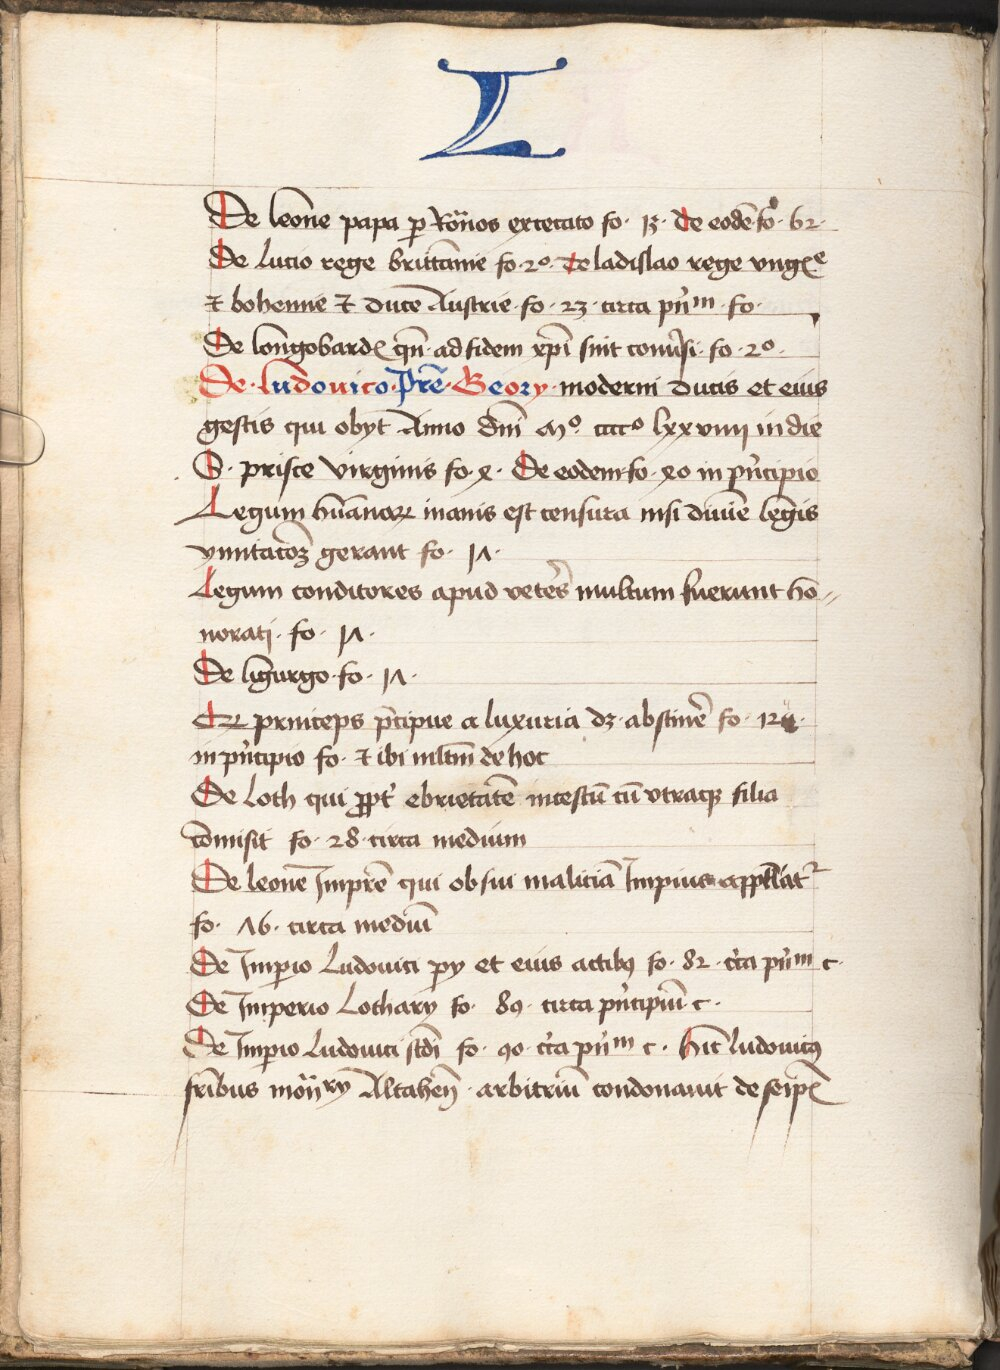 L
De leone papa p Ro͞nos excecato fo· 13· de eode͞ fo· 62·
De Lucio rege brittanie fo· 20· de ladislao rege vngꝭe
et bohemie et duce Austrie· fo· 23· circa pn͛m· fo·
De longobardꝭ qn͞· ad fidem xp͞i su͞t conu͛si· fo· 20·
De· ludouico· Pr͞e· Geory· moderni ducis et eius
gestis qui obyt Anno dn͞i Mº· ccccº lxxviiij in die
S· prisce virginis fo· x· De eodem fo· 90 in pn͛cipio
Legum hu͞anaꝝ inanis est censura nisi diui͞e legis
vnitatoꝫ gerant fo· 14·
Legum conditores apud vete͛s multum fuerunt ho-
norati· fo· 14·
De ligurgo· fo· 14·
Cꝝ princeps p͛cipue a luxuria dꝫ· abstine͛ fo· 124·
in pn͛cipio fo· et ibi ml͞tm de hoc
De Loth qui ꝓpt͛ ebrietate͞ incestu͞ cu͞ vtraqꝫ filia
co͞misit fo· 28· circa medium
De leone Impr͞e qui ob sui malicia͞ Impius appellatᷣ
fo· 46· circa mediu͞
De Imp͛io Ludouici py et eius actibꝰ fo· 82· cr͛ca pn͛m c·
De Imperio Lothary fo· 89· circa pn͛cipiu͞ c·
De Imp͛io Ludouici scd͞i fo· 90· cr͛ca pn͛m c· hic ludouicꝰ
fr͞ibus mon͞ry Altahen͞· arbitriu͞ condonauit de seipꝭ